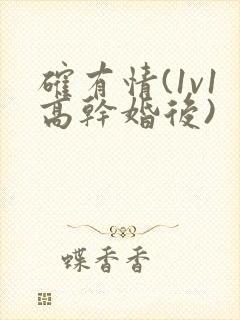 確有情(1v1
高幹婚後)
蝶香香